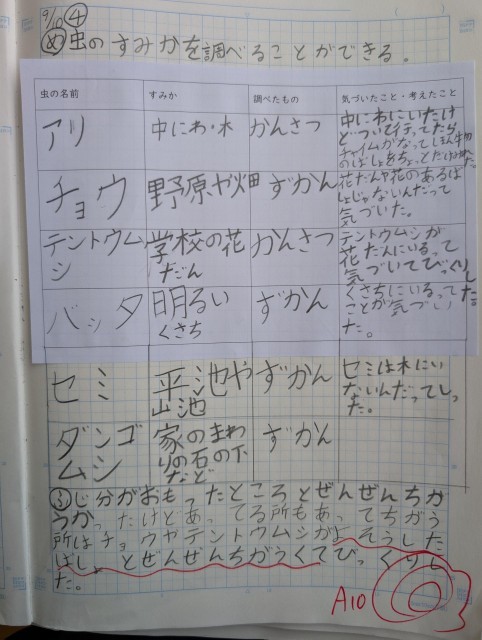 9/10 ④
め 虫のすみかを調べることができる。
虫の名前 すみか 調べたもの 気づいたこと・考えたこと
アリ 中にわ・木 かんさつ
中にわにいたけ
どついて行ってたら
チャイムがなってしまい
のばしょをちょっとだけ
チョウ 野原や畑 ずかん
花だんや花のあるば
しょじゃないんだって
気づいた。
テントウム
シ
学校の花
だん
かんさつ
テントウムシが
花だんにいるって
気づいてびっくりした。
バッタ
明るい
くさち
ずかん
くさちにいるって
ことが気づい
た。
セミ
平池や
山池
ずかん
セミは木にい
ないんだってしっ
た。
ダンゴ
ムシ
家のまわ
りの石の下
など
ずかん
ふ じ分がおもったところとぜんぜんちが
うかったけどあってる所もあってちがう
所はチョウやテントウムシがよそうした
ばしょとぜんぜんちがうくてびっくりし
た。
A10